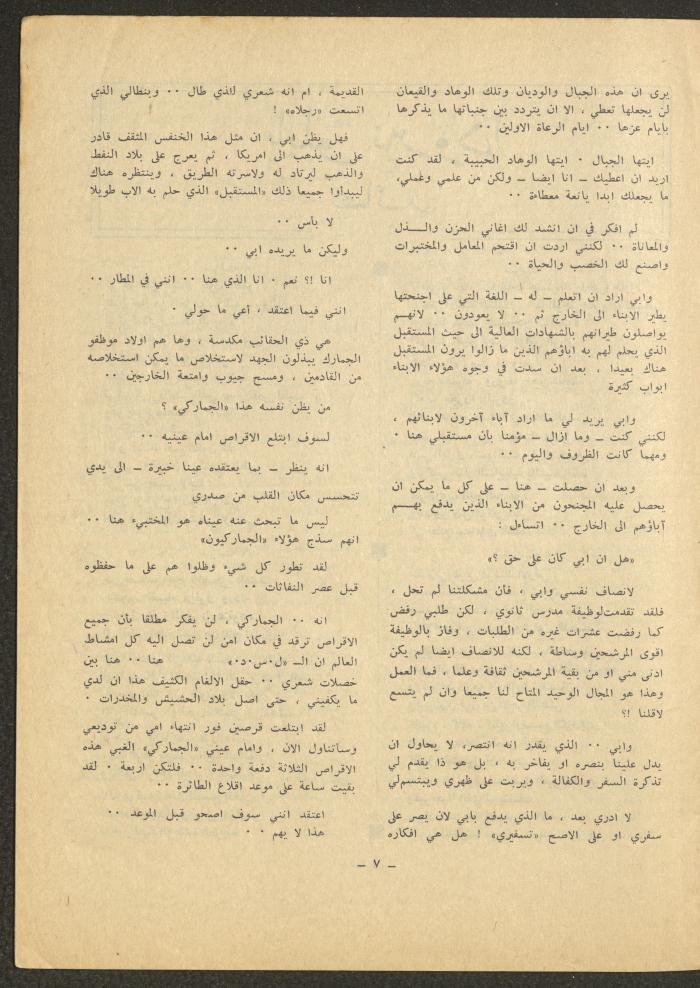 يرى ان هذه الجبال والوديان وتلك الوهاد والقيعان
لن يجعلها تعطي ، الا ان يتردد بين جنباتها ما يذكرها
بأيام عزها ٠٠ ايام الرعاة الاولين ٠٠
ايتها الجبال ٠ ايتها الوهاد الحبيبة ، لقد كنت
اريد ان اعطيك ــ انا ايضا ــ ولكن من علمي وعملي،
ما يجعلك ابدا يانعة معطاءة ٠٠
لم افكر في ان انشد لك اغاني الحزن والـــذل
والمعاناة ٠٠ لكنني اردت ان اقتحم المعامل والمختبرات
واصنع لك الخصب والحياة ٠٠
وابي اراد ان اتعلم ــ له ــ اللغة التي على اجنحتها
يطير الابناء الى الخارج ثم ٠٠ لا يعودون ٠٠ لانهـــم
يواصلون طيرانهم بالشهادات العالية الى حيث المستقبل
الذي يحلم لهم به اباؤهم الذين ما زالوا يرون المستقبل
هناك بعيدا ، بعد ان سدت في وجوه هؤلاء الابناء
ابواب كثيرة
وابي يريد لي ما اراد آباء آخرون لابنائهم ،
لكنني كنت ــ وما ازال ــ مؤمنا بأن مستقبلي هنا ٠
ومهما كانت الظروف واليوم ٠٠
وبعد ان حصلت ــ هنا ــ على كل ما يمكن ان
يحصل عليه المجنحون من الابناء الذين يدفع بهـــم
آباؤهم الى الخارج ٠٠ اتساءل :
«هل ان ابي كان على حق ؟»
لانصاف نفسي وابي ، فأن مشكلتنا لم تحل ،
فلقد تقدمت لوظيفة مدرس ثانوي ، لكن طلبي رفض
كما رفضت عشرات غيره من الطلبات ، وفاز بالوظيفة
اقوى المرشحين وساطة ، لكنه للانصاف ايضا لم يكن
ادنى مني او من بقية المرشحين ثقافة وعلما ، فما العمل
وهذا هو المجال الوحيد المتاح لنا جميعا وان لم يتسع
لاقلنا ؟!
وابي ٠٠ الذي يقدر انه انتصر، لا يحاول ان
يدل علينا بنصره او يفاخر به ، بل هو ذا يقدم لي
تذكرة السفر والكفالة ، ويربت على ظهري ويبتسم لي
لا ادري بعد ، ما الذي يدفع بابي لان يصر على
سفري او على الاصح «تسفيري» ! هل هي افكاره
القديمة ، ام انه شعري الذي طال ٠٠ وبنطالي الذي
اتسعت «رجلاه» !
فهل يظن ابي ، ان مثل هذا الخنفس المثقف قادر
على ان يذهب الى امريكا ، ثم يعرج على بلاد النفط
والذهب ليرتاد له ولاسرته الطريق ، وينتظره هناك
ليبدأوا جميعا ذلك «المستقبل» الذي حلم به الاب طويلا
لا بأس ٠٠
وليكن ما يريده ابي ٠٠
انا !؟ نعم ٠ انا الذي هنا ٠٠ انني في المطار ٠٠
انني فيما اعتقد ، أعي ما حولي ٠
هي ذي الحقائب مكدسة ، وها هم اولاد موظفو
الجمارك يبذلون الجهد لاستخلاص ما يمكن استخلاصه
من القادمين ، ومسح جيوب وامتعة الخارجين ٠٠
من يظن نفسه هذا «الجماركي» ؟
لسوف ابتلع الاقراص امام عينيه ٠٠
انه ينظر ــ بما يعتقده عينا خبيرة ــ الى يدي
تتحسس مكان القلب من صدري
ليس ما تبحث عنه عيناه هو المختبيء هنا ٠٠
انهم سذج هؤلاء «الجماركيون»
لقد تطور كل شيء وظلوا هم على ما حفظوه
قبل عصر النفاثات ٠٠
انه ٠٠ الجماركي ، لن يفكر مطلقا بأن جميع
الاقراص ترقد في مكان امن لن تصل اليه كل امشاط
العالم ان الــ «ل٠س٠د٠» هنا ٠٠ هنا بين
خصلات شعري ٠٠ حقل الالغام الكثيف هذا ان لدي
ما يكفيني ، حتى اصل بلاد الحشيش والمخدرات ٠
لقد ابتلعت قرصين فور انتهاء امي من توديعي
وسأتناول الان ، وامام عيني «الجماركي» الغبي هذه
الاقراص الثلاثة دفعة واحدة ٠٠ فلتكن اربعة ٠ لقد
بقيت ساعة على موعد اقلاع الطائرة ٠٠
اعتقد انني سوف اصحو قبل الموعد ٠٠
هذا لا يهم ٠٠
ــ ٧ ــ